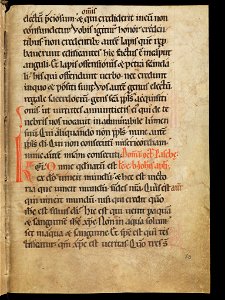 omnis
electu preciosum & qui crediderit in eum non
confundetur Vobis igitur honor creden
tibus non credentib; autem lapis que rep
bauerunt edificantes hic factus est in caput
anguli & lapis offensionis & petra scanda
li his qui offendunt uerbo nec credunt
in quo & positi sunt Vos autem genus electu
regale sacerdotiu gens sca pls adquisiti
onis ut uirtutes annuntietis ei qui de te
nebris uos uocauit in admirabile lumen
suum Qui aliquando non pls nunc aute
pls di Qui non consecuti misericordiam
nunc aute miam consecuti
Omne qd natu est
ex deo uincit mundu & hec est uicto
ria que uincit mundu fides nra Quis est aut
qui uincit mundu nisi qui credit quo
ihc est filius di Hic est qui uenit p aqua
& sanguine ihc xpc Non in aqua solum
set in aqua & sanguine Et spc est qui tes
tificatur qm xpc est ueritas Quo tres s